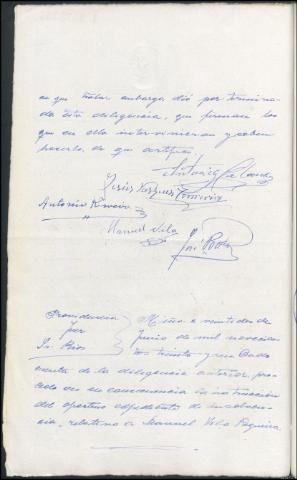 en que trabar embargo, dió por termina-
da esta diligencia, que firman los
que en ella intervinieron y saben
hacerlo, de que certifico.
Antonio
Jesús Vazquez
Antonio Rivera
Manuel Vila
José
Providencia
Juez
Sr. Rios
Miño a veintidos de
Junio de mil novecien
tos treinta y seis. Dada
cuenta de la diligencia anterior, pro-
ceda en su consecuencia la instrucción
del oportuno expediente de insolven-
cia, relativo a Manuel Vila Pequeira.